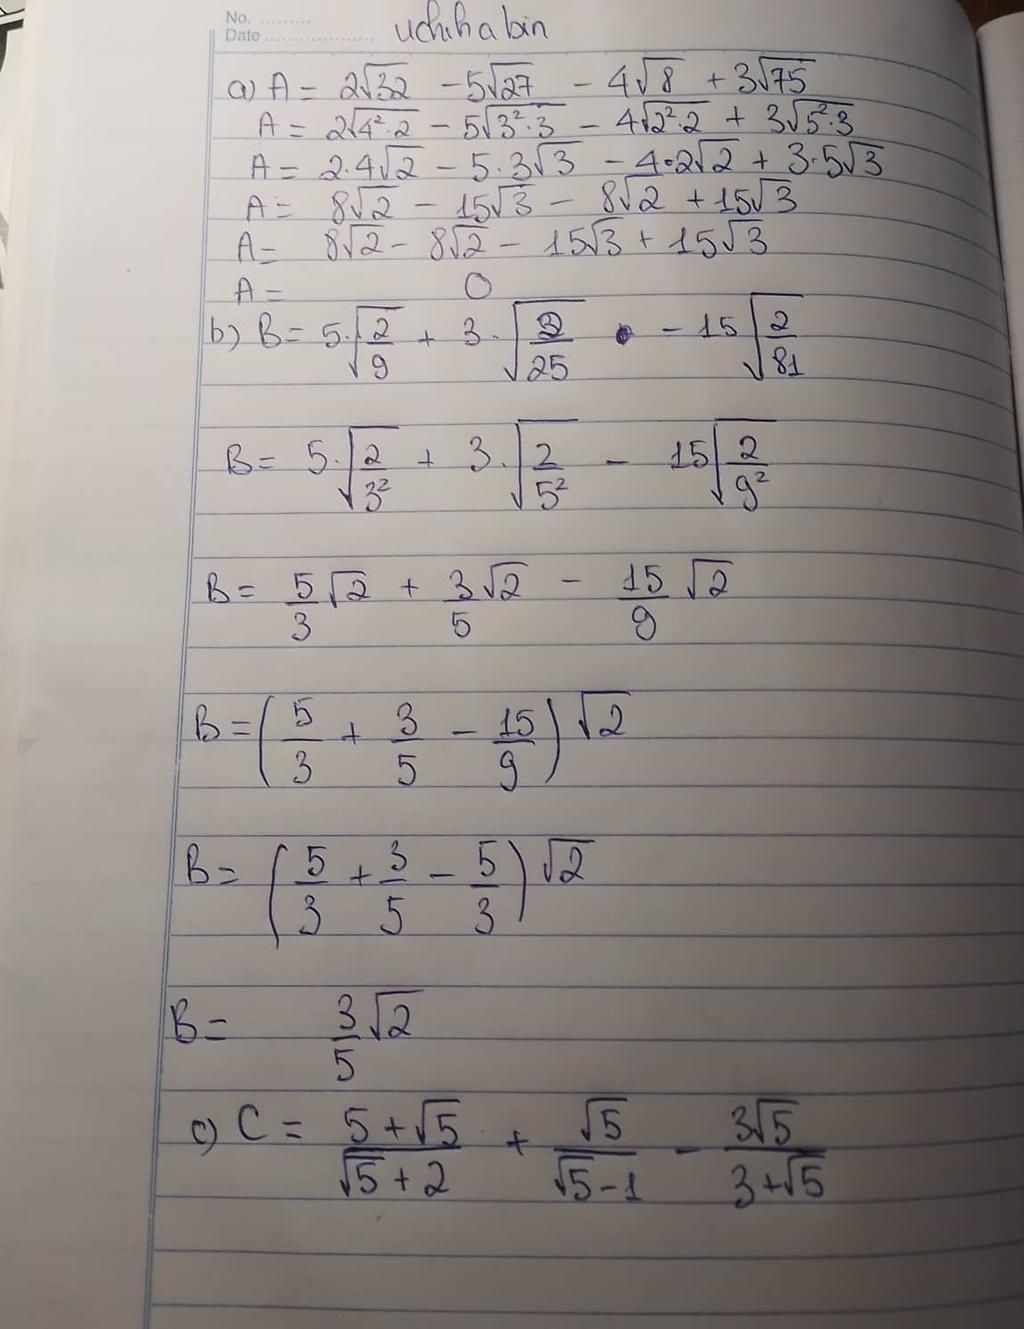 No. ..........
Date ................... uchihabin
a) A = 2√32 - 5√27 - 4√8 + 3√75
A = 2√4².2 - 5√3².3 - 4√2².2 + 3√5².3
A = 2.4√2 - 5.3√3 - 4.2√2 + 3.5√3
A = 8√2 - 15√3 - 8√2 + 15√3
A = 8√2 - 8√2 - 15√3 + 15√3
A = 0
b) B = 5.√(2/9) + 3.√(2/25) - 15√(2/81)
B = 5.√(2/3²) + 3.√(2/5²) - 15√(2/9²)
B = 5/3 √2 + 3/5 √2 - 15/9 √2
B = (5/3 + 3/5 - 15/9) √2
B = (5/3 + 3/5 - 5/3) √2
B = 3/5 √2
c) C = (5+√5)/(√5+2) + √5/(√5-1) - 3√5/(3+√5)